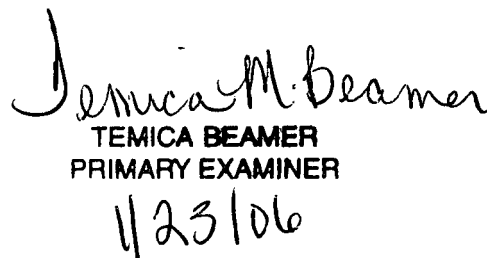 Temica M. Beamer
TEMICA BEAMER
PRIMARY EXAMINER
1/23/06